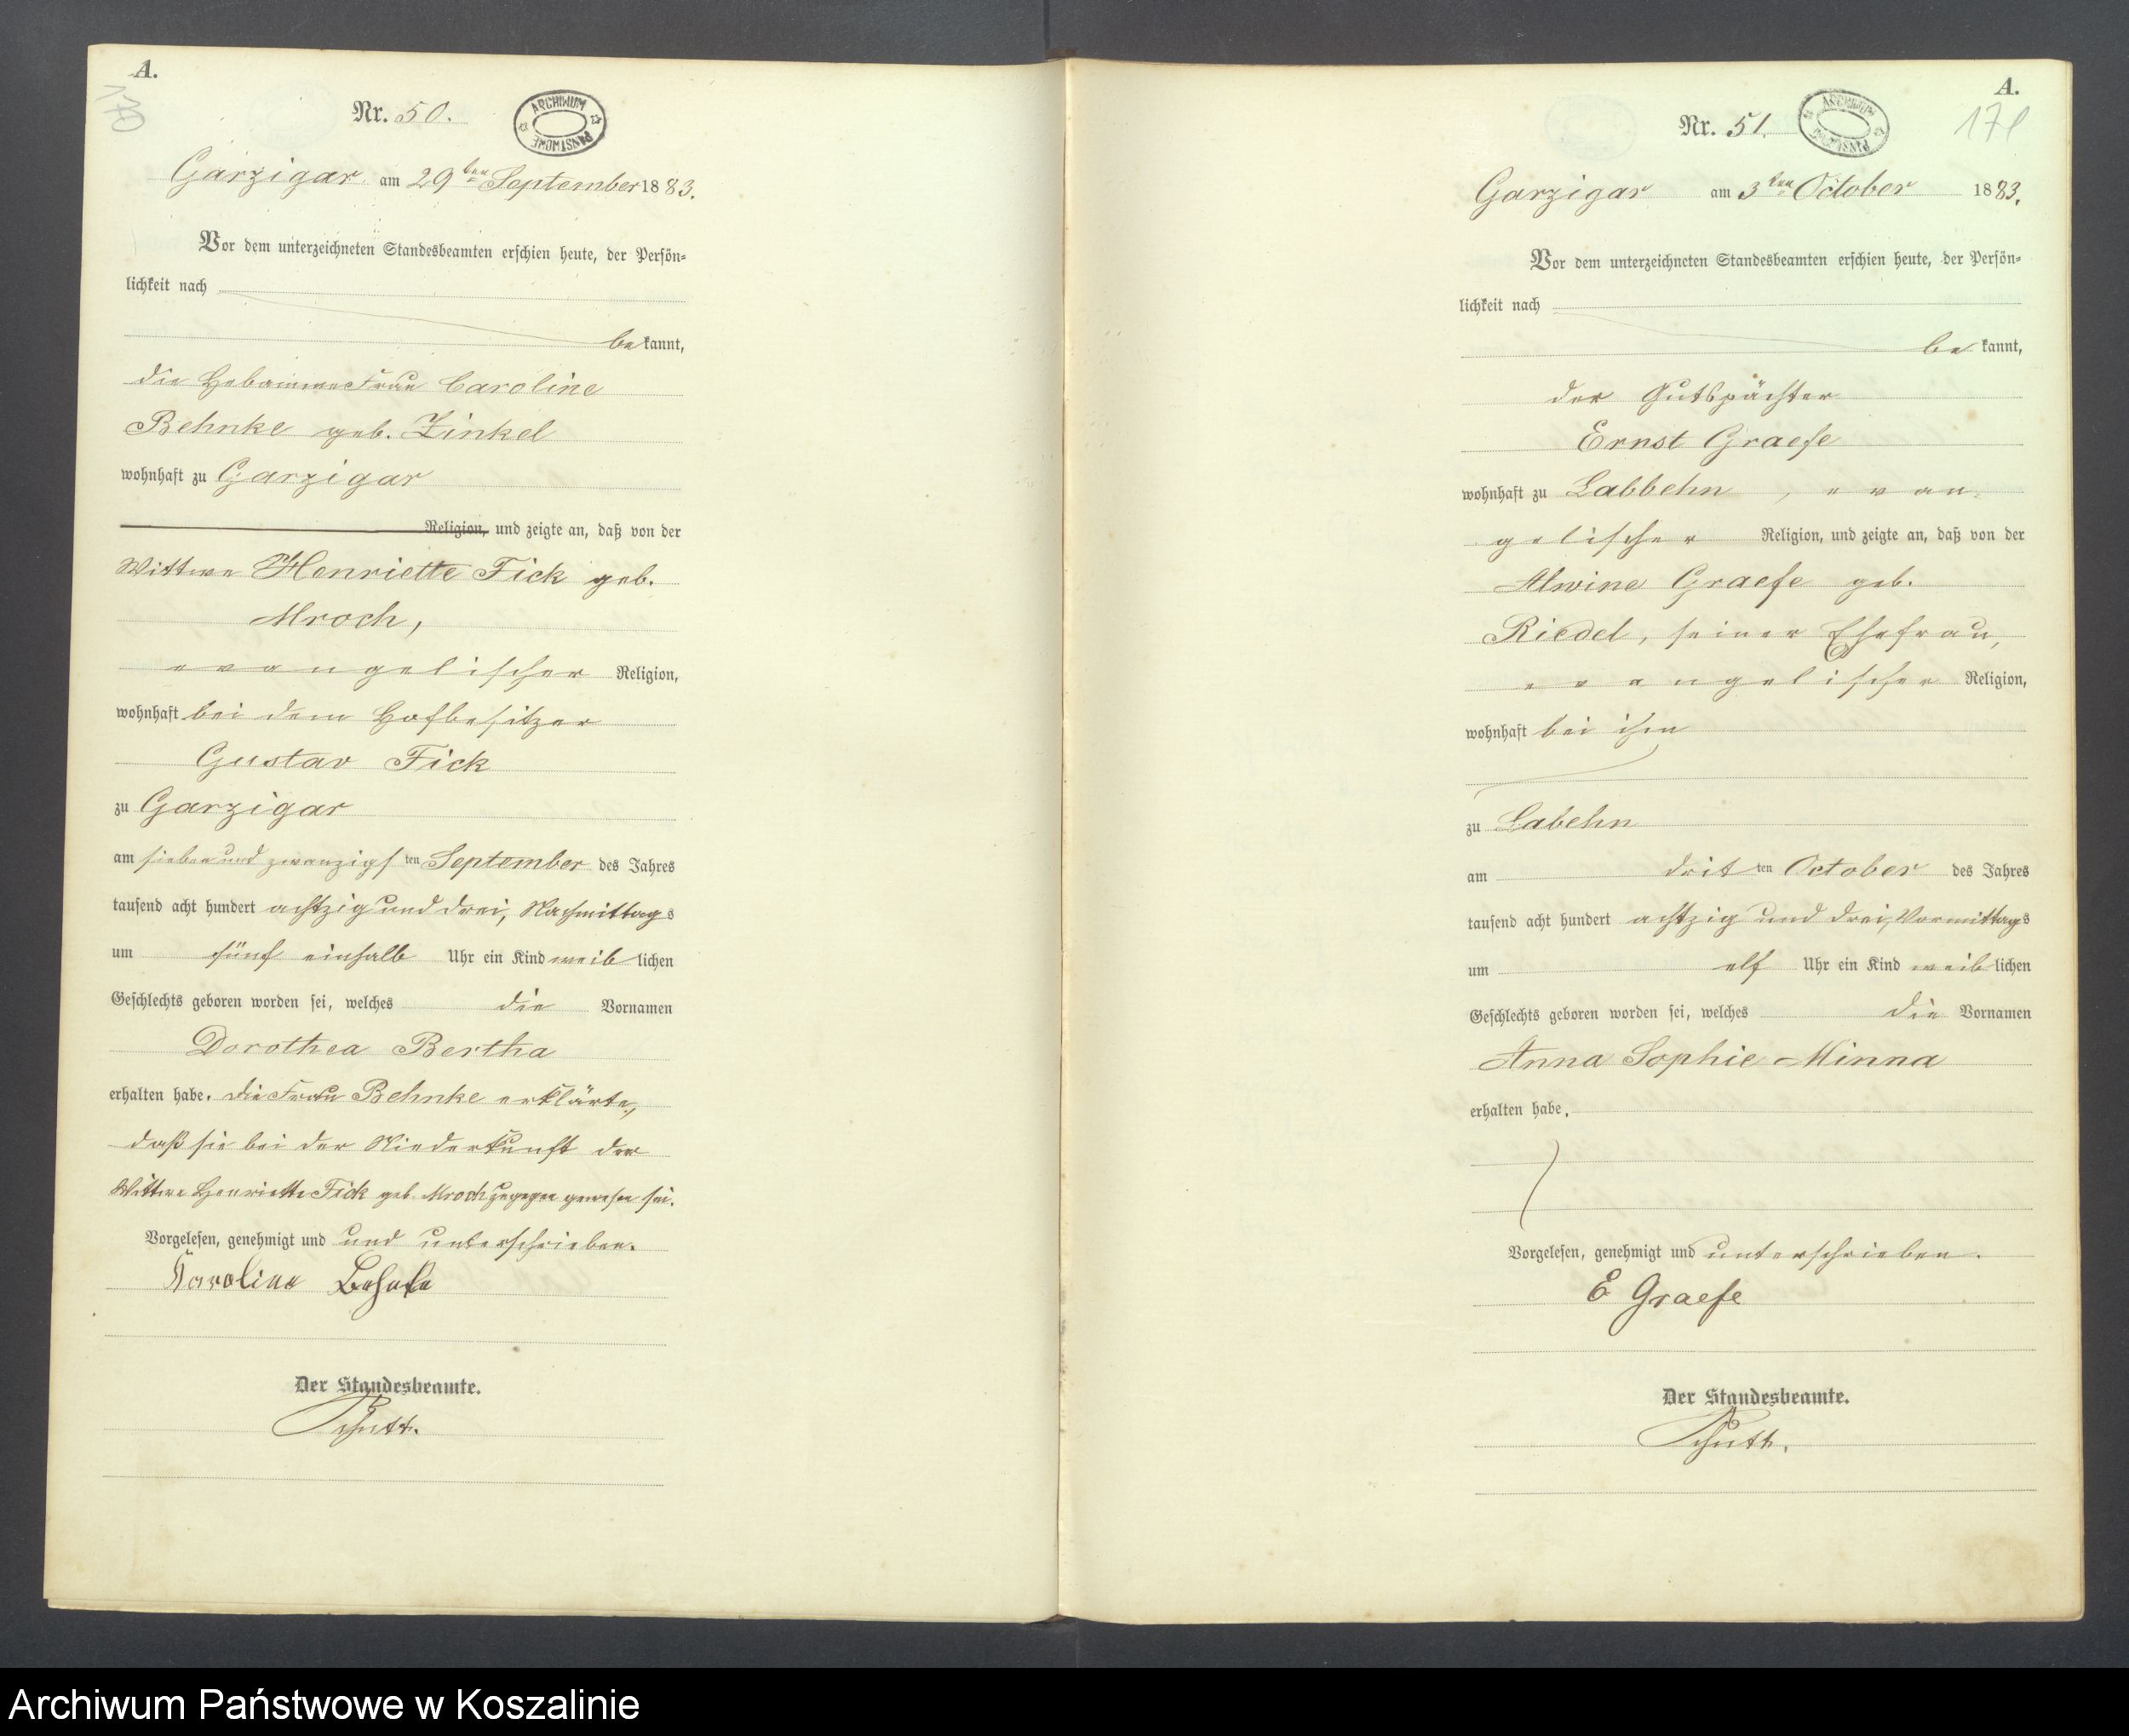 A.
170
Nr. 50.
ARCHIWUM PAŃSTWOWE
Garzigar am 29ten September 1883.
Vor dem unterzeichneten Standesbeamten erschien heute, der Persön-
lichkeit nach
bekannt,
die Hebamme Frau Caroline
Behnke geb. Zinkel
wohnhaft zu Garzigar
Religion, und zeigte an, daß von der
Wittwe Henriette Fick geb.
Mroch,
evangelischer Religion,
wohnhaft bei dem Hofbesitzer
Gustav Fick
zu Garzigar
am sieben und zwanzigsten September des Jahres
tausend acht hundert achtzig und drei, Nachmittags
um fünf einhalb Uhr ein Kind weiblichen
Geschlechts geboren worden sei, welches die Vornamen
Dorothea Bertha
erhalten habe. Die Frau Behnke erklärte,
daß sie bei der Niederkunft der
Wittwe Henriette Fick geb. Mroch zugegen gewesen sei.
Vorgelesen, genehmigt und und unterschrieben.
Karoline Behnke
Der Standesbeamte.
A.
171
Nr. 51.
ARCHIWUM PAŃSTWOWE
Garzigar am 3ten October 1883.
Vor dem unterzeichneten Standesbeamten erschien heute, der Persön-
lichkeit nach
bekannt,
der Gutspächter
Ernst Graefe
wohnhaft zu Labbehn, evan-
gelischer Religion, und zeigte an, daß von der
Alwine Graefe geb.
Riedel, seiner Ehefrau,
evangelischer Religion,
wohnhaft bei ihm
zu Labehn
am dritten October des Jahres
tausend acht hundert achtzig und drei, Vormittags
um elf Uhr ein Kind weiblichen
Geschlechts geboren worden sei, welches die Vornamen
Anna Sophie Minna
erhalten habe.
Vorgelesen, genehmigt und unterschrieben.
E Graefe
Der Standesbeamte.
Archiwum Państwowe w Koszalinie